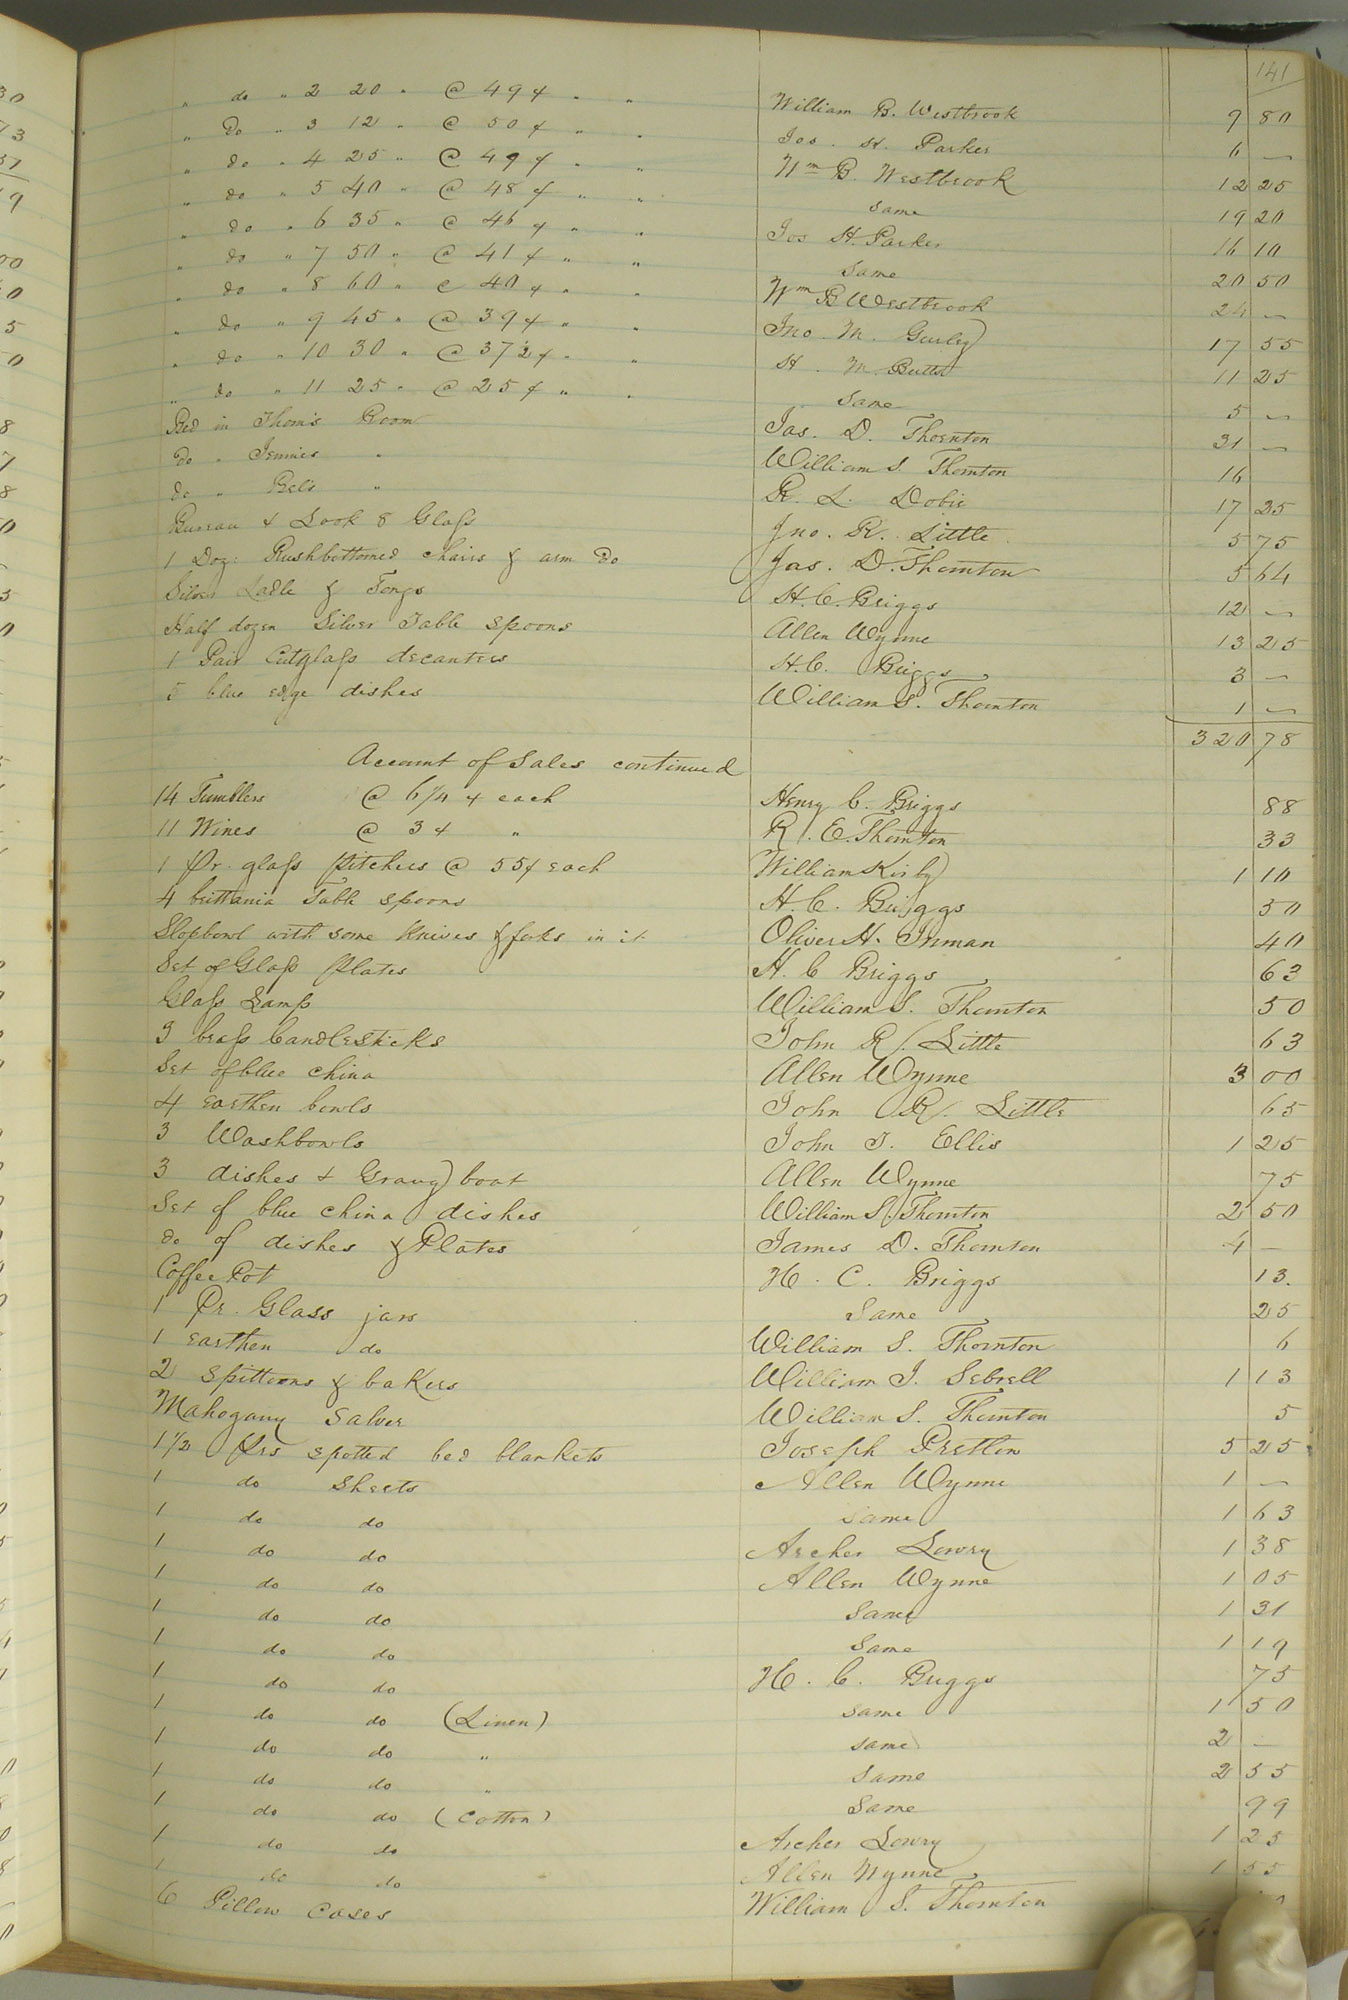 141
" do " 2 20 " @ 49 ¢ " " William B. Westbrook 9 80
" Do " 3 12 " @ 50 ¢ " " Jos. H. Parker 6 —
" do " 4 25 " @ 49 ¢ " " Wm B. Westbrook 12 25
" do " 5 40 " @ 48 ¢ " " same 19 20
" do " 6 35 " @ 46 ¢ " " Jos H. Parker 16 10
" do " 7 50 " @ 41 ¢ " " Same 20 50
" do " 8 60 " @ 40 ¢ " " Wm B Westbrook 24 —
" do " 9 45 " @ 39 ¢ " " Jno. M. Gurley 17 55
" do " 10 30 " @ 37 ½ ¢ " " H. M. Butts 11 25
" do " 11 25 " @ 25 ¢ " " Same 5 —
Bed in Thom's Room Jas. D. Thornton 31 —
do " Jennies " William S. Thornton 16
do " " R. L. Dobie 17 25
Bureau & Look g Glass Jno. R. Little 5 75
1 Doz: Rushbottomed chairs & arm Do Jas. D. Thornton 5 64
Silver Ladle & Tongs H. C. Briggs 12 —
Half dozen Silver Table Spoons Allen Wynne 13 25
1 Pair Cutglass decanters H. C. Briggs 3 —
5 blue edge dishes William S. Thornton 1 —
320 78
Account of Sales continued
14 Tumblers @ 6¼ ¢ each Henry C. Briggs 88
11 Wines @ 3 ¢ " R. E. Thornton 33
1 Pr. glass pitchers @ 55¢ each William Kirby 1 10
4 brittania Table spoons H. C. Briggs 50
Slopbowl with some knives & forks in it Oliver H. Inman 40
Set of Glass Plates H. C Briggs 63
Glass Lamp William S. Thornton 50
3 brass Candlesticks John R. Little 63
Set of blue china Allen Wynne 3 00
4 earthen bowls John R. Little 65
3 Washbowls John T. Ellis 1 25
3 dishes & Gravy boat Allen Wynne 75
Set of blue china dishes William S. Thornton 2 50
do of dishes & Plates James D. Thornton 4 —
Coffee Pot H. C. Briggs 13.
1 Pr. Glass jars Same 25
1 earthen do William S. Thornton 6
2 spittoons & bakers William J. Sebrell 1 13
Mahogany Salver William S. Thornton 5
1 ½ Prs spotted bed blankets Joseph Pretlow 5 25
1 do Sheets Allen Wynne 1 —
1 do do same 1 63
1 do do Archer Lowry 1 38
1 do do Allen Wynne 1 05
1 do do Same 1 31
1 do do Same 1 19
1 do do H. C. Briggs 75
1 do do (Linen) same 1 50
1 do do " same 2 —
1 do do " Same 2 55
1 do do (Cotton) Same 99
1 do do Archer Lowry 1 25
1 do do Allen Wynne 1 55
6 Pillow Cases William S. Thornton